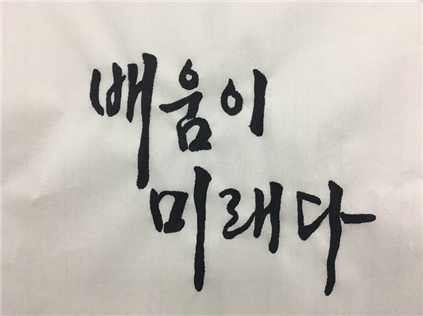 배움이
미래다